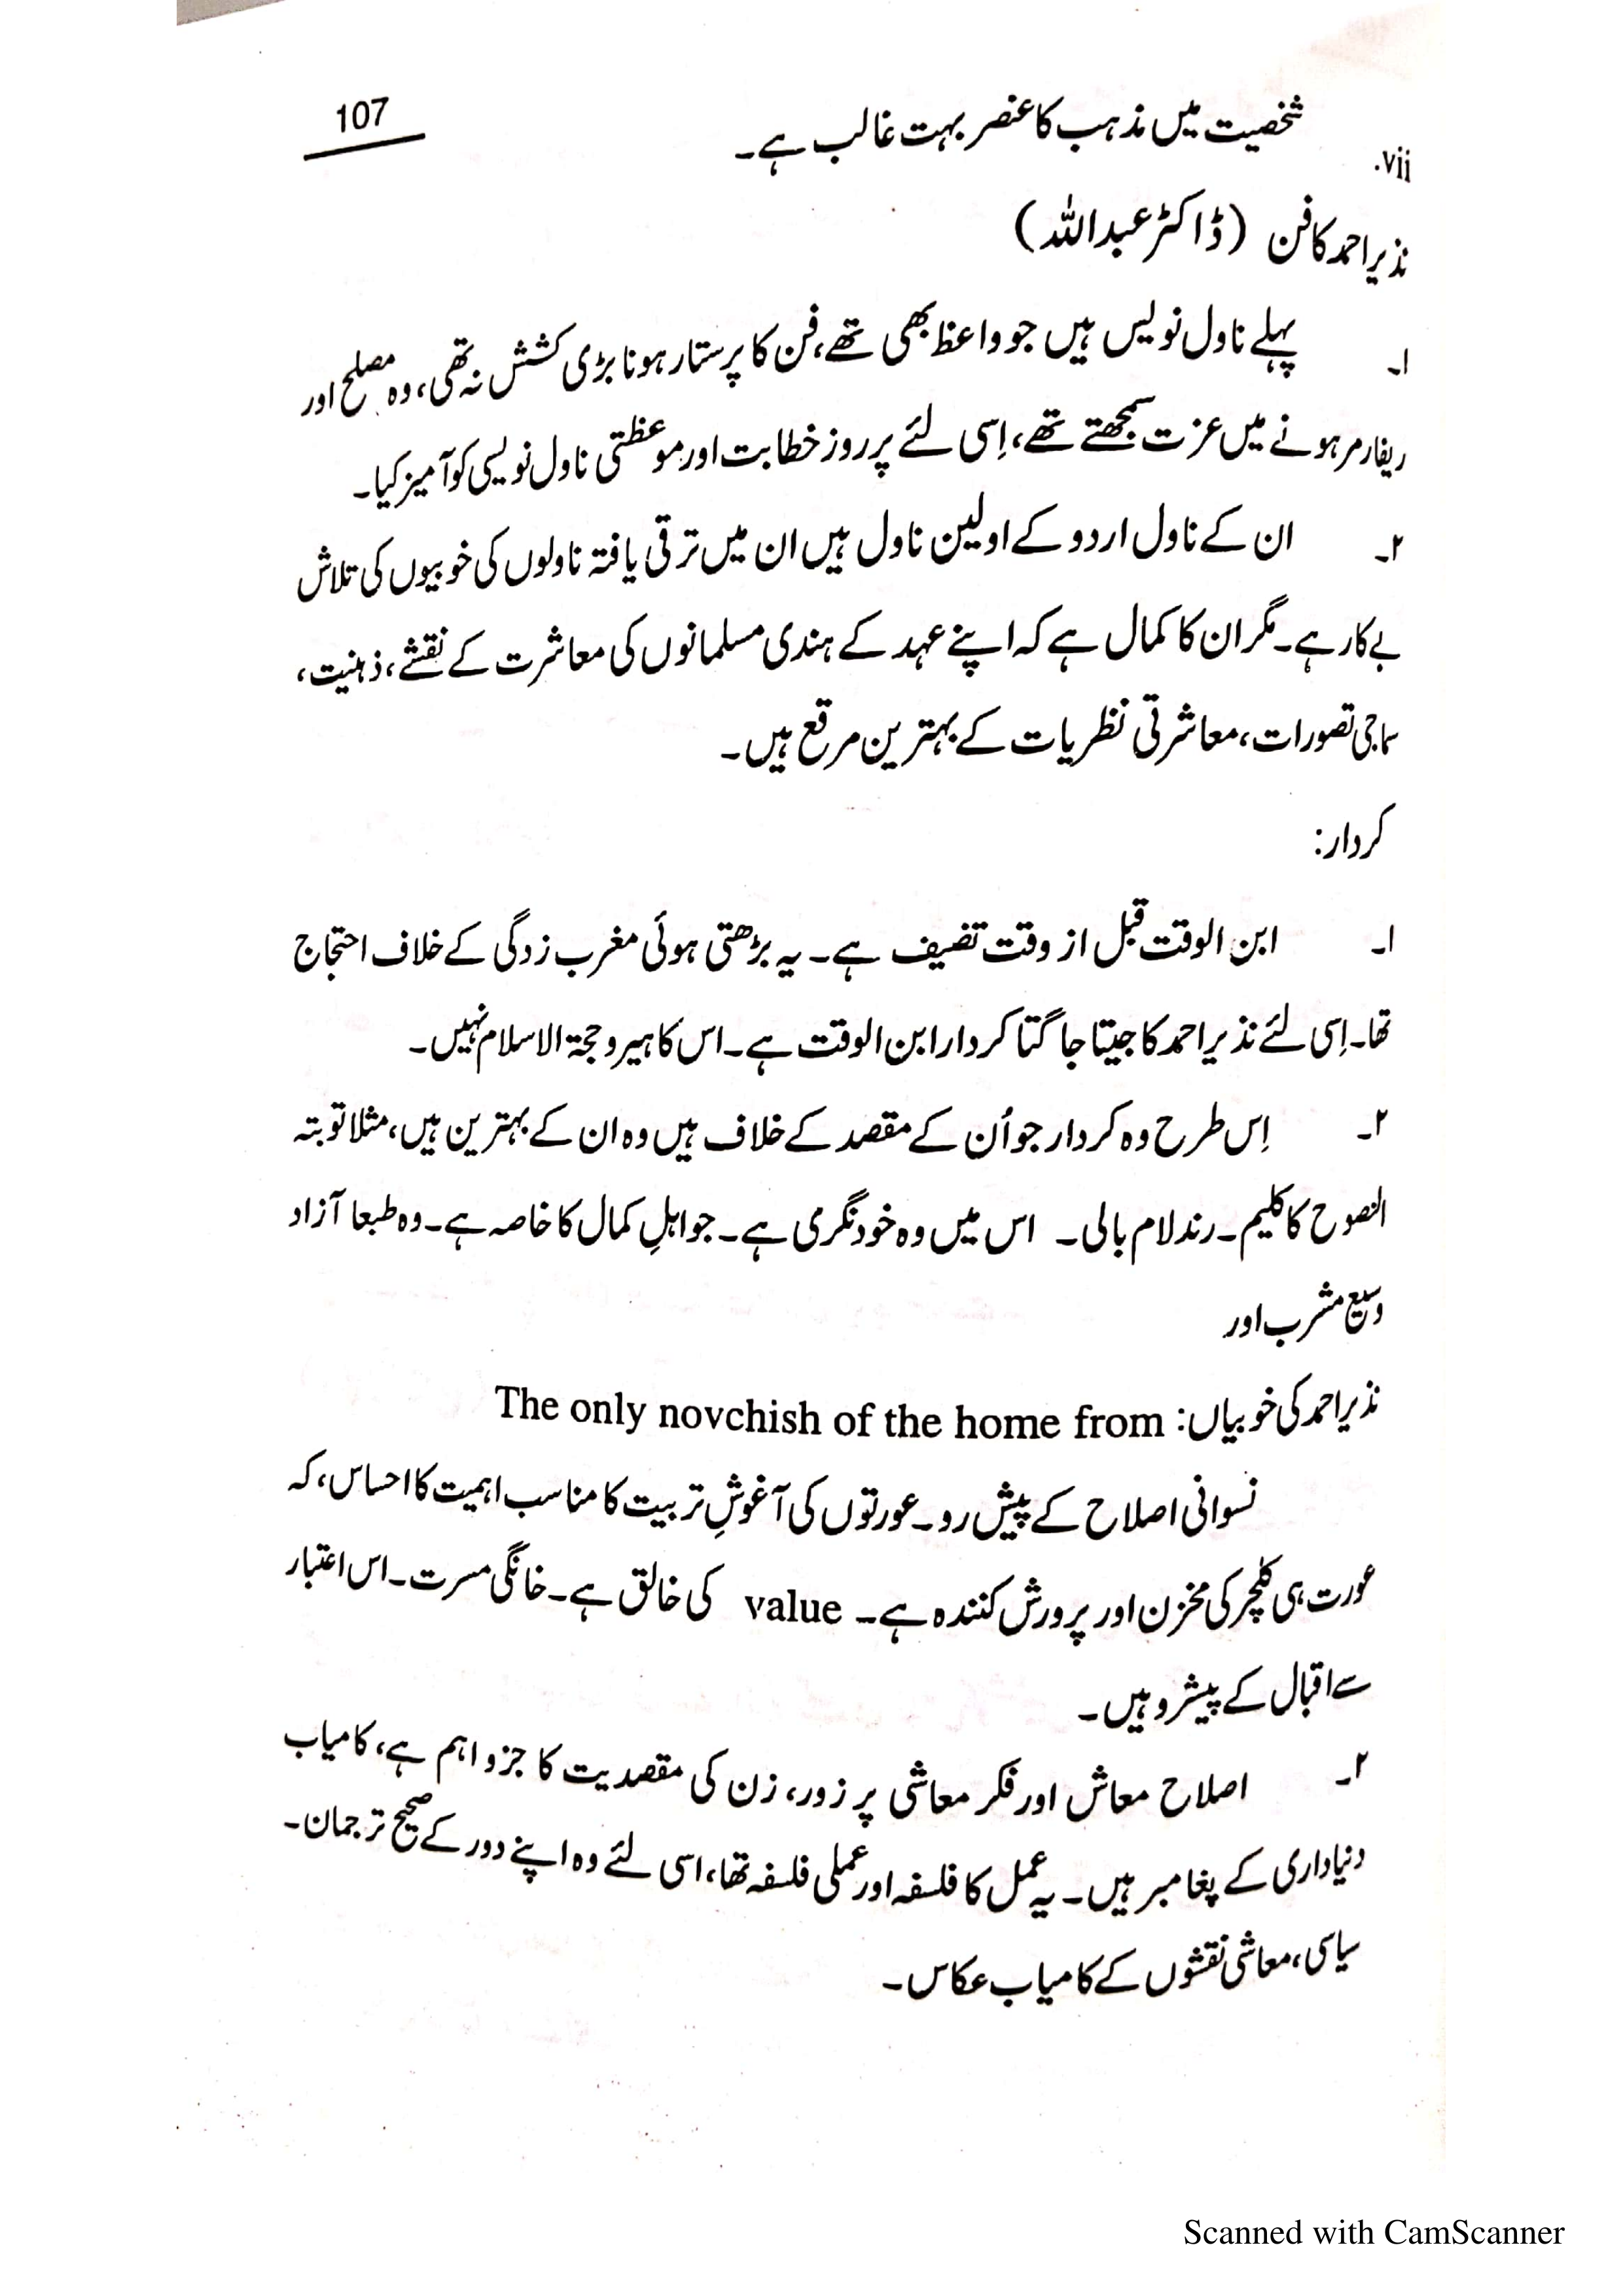 107
vii. شخصیت میں مذہب کا عنصر بہت غالب ہے۔
نذیر احمد کا فن (ڈاکٹر عبداللہ)
۱۔ پہلے ناول نویس ہیں جو واعظ بھی تھے، فن کا پرستار ہونا بڑی کشش نہ تھی، وہ مصلح اور
ریفارمر ہونے میں عزت سمجھتے تھے، اِسی لئے پر روز خطابت اور موعظتی ناول نویسی کو آمیز کیا۔
۲۔ ان کے ناول اردو کے اولین ناول ہیں ان میں ترقی یافتہ ناولوں کی خوبیوں کی تلاش
بے کار ہے۔ مگر ان کا کمال ہے کہ اپنے عہد کے ہندی مسلمانوں کی معاشرت کے نقشے، ذہنیت،
سماجی تصورات، معاشرتی نظریات کے بہترین مرقع ہیں۔
کردار:
۱۔ ابن الوقت قبل از وقت تضیف ہے۔ یہ بڑھتی ہوئی مغرب زدگی کے خلاف احتجاج
تھا۔ اِسی لئے نذیر احمد کا جیتا جاگتا کردار ابن الوقت ہے۔ اس کا ہیرو حجۃ الاسلام نہیں۔
۲۔ اِس طرح وہ کردار جو اُن کے مقصد کے خلاف ہیں وہ ان کے بہترین ہیں، مثلا توبتہ
النصوح کا کلیم۔ رند لام بالی۔ اس میں وہ خود نگری ہے۔ جو اہلِ کمال کا خاصہ ہے۔ وہ طبعا آزاد
وسیع مشرب اور
نذیر احمد کی خوبیاں: The only novchish of the home from
نسوانی اصلاح کے پیش رو۔ عورتوں کی آغوشِ تربیت کا مناسب اہمیت کا احساس، کہ
عورت ہی کلچر کی مخزن اور پرورش کنندہ ہے۔ value کی خالق ہے۔ خانگی مسرت۔ اس اعتبار
سے اقبال کے پیشرو ہیں۔
۲۔ اصلاح معاش اور فکر معاشی پر زور، زن کی مقصدیت کا جزو اہم ہے، کامیاب
دنیاداری کے پغامبر ہیں۔ یہ عمل کا فلسفہ اور عملی فلسفہ تھا، اسی لئے وہ اپنے دور کے صحیح ترجمان۔
سیاسی، معاشی نقشوں کے کامیاب عکاس۔
Scanned with CamScanner